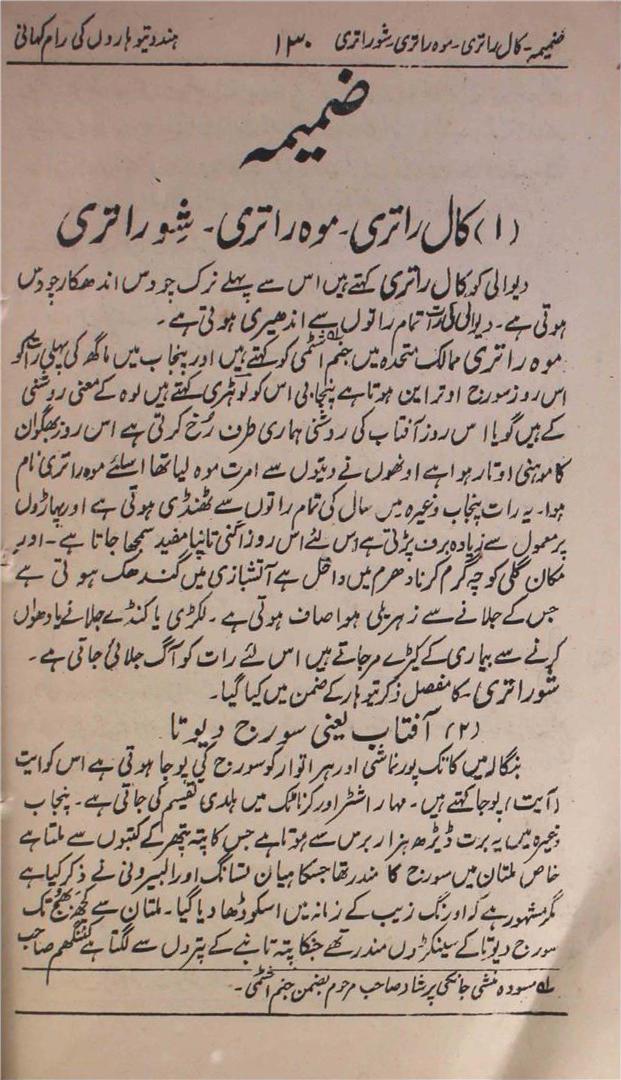 ضمیمہ۔ کال راتری۔ موہ راتری۔ شوراتری ۱۳۰ ہندو تیوہاروں کی رام کہانی
ضمیمہ
(۱) کال راتری۔ موہ راتری۔ شِوراتری
دیوالی کو کال راتری کہتے ہیں اس سے پہلے نرک چودس اندھکار چودس
ہوتی ہے۔ دیوالی کی رات تمام راتوں سے اندھیری ہوتی ہے۔
موہ راتری ممالک متحدہ میں جنم اشٹمی کو کہتے ہیں اور پنجاب میں ماگھ کی پہلی رات کو
اس روز سورج اوتراین ہوتا ہے پنجابی اس کو لوہڑی کہتے ہیں لوہ کے معنی روشنی
کے ہیں گویا اس روز آفتاب کی روشنی ہماری طرف رُخ کرتی ہے اس روز بھگوان
کا موہنی اوتار ہوا ہے اونھوں نے دیتوں سے امرت موہ لیا تھا اسلئے موہ راتری نام
ہوا۔ یہ رات پنجاب وغیرہ میں سال کی تمام راتوں سے ٹھنڈی ہوتی ہے اور پہاڑوں
پر معمول سے زیادہ برف پڑتی ہے اس لئے اس روز اگنی تاپنا مفید سمجھا جاتا ہے۔ اور
مکان گلی کوچہ گرم کرنا دھرم میں داخل ہے آتشبازی میں گندھک ہوتی ہے
جس کے جلانے سے زہریلی ہوا صاف ہوتی ہے۔ لکڑی یا کنڈے جلانے یا دھواں
کرنے سے بیماری کے کیڑے مرجاتے ہیں اس لئے رات کو آگ جلائی جاتی ہے۔
شوراتری۔ کا مفصل ذکر تیوہار کے ضمن میں کیا گیا۔
(۲) آفتاب یعنی سورج دیوتا
بنگالہ میں کاتک پورنماشی اور ہر اتوار کو سورج کی پوجا ہوتی ہے اس کو ایت
(آیت) پوجا کہتے ہیں۔ مہاراشٹر اور کرناٹک میں ہلدی تقسیم کی جاتی ہے۔ پنجاب
وغیرہ میں یہ برت ڈیڑھ ہزار برس سے ہوتا ہے جس کا پتہ پتھر کے کتبوں سے ملتا ہے
خاص ملتان میں سورج کا مندر تھا جسکا ہیان تسانگ اور البیرونی نے ذکر کیا ہے
مگر مشہور ہے کہ اورنگ زیب کے زمانہ میں اسکو ڈھا دیا گیا۔ ملتان سے کچھ بھج تک
سورج دیوتا کے سینکڑوں مندر تھے جنکا پتہ تانبے کے پتروں سے لگتا ہے کننگھم صاحب
لہ مسودہ منشی جانکی پرشاد صاحب مرحوم بضمن جنم اشٹمی۔